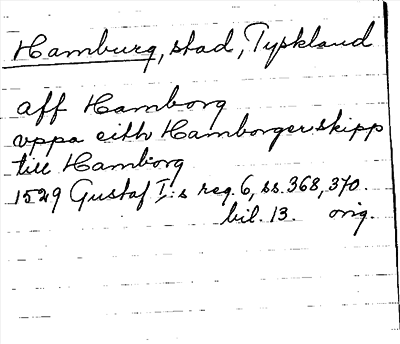 Hamburg, stad, Tyskland
aff Hamborg
vppa eith Hamborger skipp
till Hamborg
1529 Gustaf I:s reg. 6, ss. 368, 370.
bil. 13. orig.